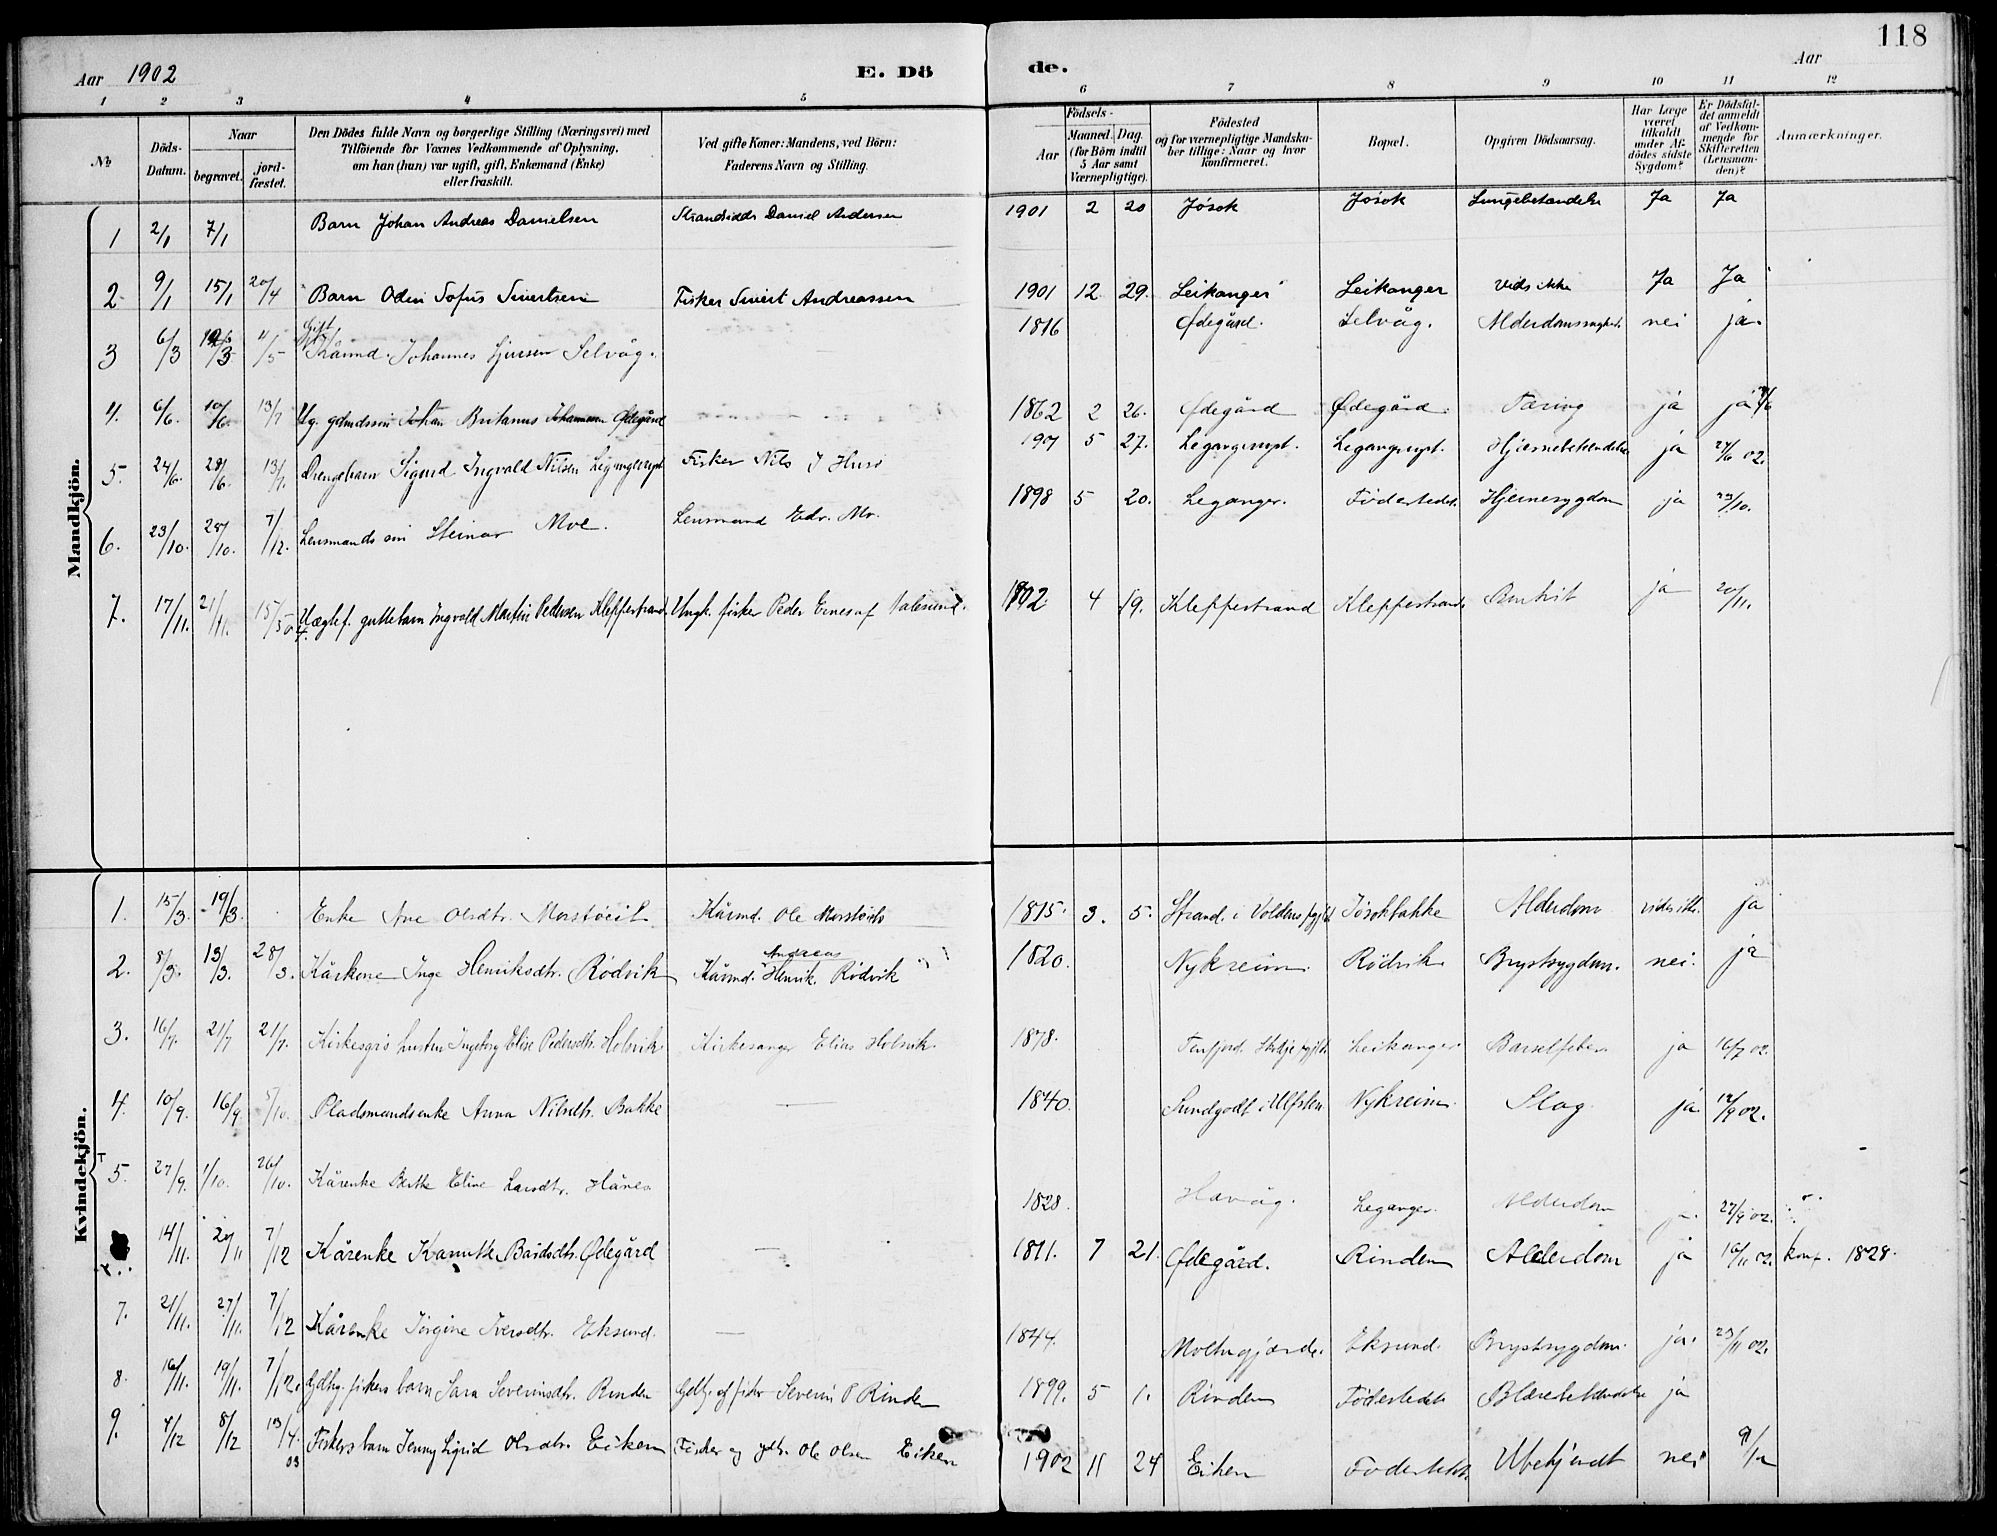 118
Aar 1902 E. Dö de. Aar
1 2 3 4 5 6 7 8 9 10 11 12
No
Döds-Datum.
Naar begravet. jordfæstet.
Den Dödes fulde Navn og borgerlige Stilling (Næringsvei) med Tilföiende for Voxnes Vedkommende af Oplysning, om han (hun) var ugift, gift, Enkemand (Enke) eller fraskilt.
Ved gifte Koner: Mandens, ved Börn: Faderens Navn og Stilling.
Födsels- Aar Maaned. Dag. (for Börn indtil 5 Aar samt Værnepligtige).
Födested og for værnepligtige Mandskaber tillige: Naar og hvor konfirmeret.
Bopæl.
Opgiven Dödsaarsag.
Har Læge været tilkaldt under Afdödes sidste Sygdom?
Er Dödsfaldet anmeldt af Vedkommende for Skifteretten (Lensmanden)?
Anmærkninger.
Mandkjön.
1 2/1 7/1 Barn Johan Andreas Danielsen Strandsidder Daniel Andersen 1901 2 20 Jøsok Jøsok Lungebetændelse Ja Ja
2 9/1 15/1 20/4 Barn Odin Sofus Sivertsen Fisker Sivert Andreassen 1901 12 29. Leikanger Leikanger Vides ikke Ja Ja
3 6/3 /3 11/5 Gift Kårmd. Johannes Sjursen Selvåg. 1816 Ødegård. Selvåg. Alderdomssvaghed nei ja.
4. 6/6. 10/6. 13/7 Ug. gdmdssøn Johan Johannesen Ødegård 1862 2 26. Ødegård Ødegård. Tæring ja ja
5. 24/6. 28/6. 13/7. Drengebarn Sigurd Ingvald Nilsen Fisker Nils J Husø 1901 5 27. Hjernebetændelse ja 27/6 02.
6. 23/10. 28/10. 7/12. Lensmands søn Steinar Moe. Lensmand Edv. Mo. 1898 5 20. Leganger. Fødestedet. Hjernesygdom ja 23/10.
7. 17/11. 21/11. 15/5 Uægtef. guttebarn Ingvald Martin Pedersen Kleppestrand. Ungk. fisker Peder 1902. 4 19. Kleppestrand Kleppestrand. ja 20/11.
Kvindekjön.
1. 15/3. 19/3. Enke Ane Olsdtr. Kårmd. Ole 1815. 3. 5. Strand i Voldens pgjld Jøsokbakke Alderdom vides ikke. ja
2. 8/3. 13/3. 28/3. Kårkone Inge Henriksdtr. Rødvik Kårmd. Andreas Henrik. Rødvik 1820. Nykreim. Rødvik Brystsygdom. nei. ja
3. 16/7. 21/7 21/7. Kirkesgrs hustru Ingeborg Elise Pedersdtr. Holsvik Kirkesanger Elias Holsvik. 1878. Leikanger Barselfeber. ja 16/7 02.
4. 10/9. 16/9 5/10. Pladsmandsenke Anna Nilsdtr. Bakke 1840. Sundgodt i Ulfsten Nykreim Slag. ja 12/9 02.
5 27/9. 1/10. 26/10. Kårenke Berthe Eline Larsdtr. Hånes 1828. Havåg. Leganger. Alderdom 27/9 02.
14/11. 20/11 7/12 Kårenke Kanutte Bårdsdtr. Ødegård 1811. 7 21. Ødegård. Rinden Alderdom ja 16/11 02. konf. 1828.
7. 21/11. 27/11. 7/12 Kårenke Jørgine Iversdtr. Eksund. 1844. Moltugjærde. Eksund. Brystsygdom. ja. 23/11 02.
8. 16/11. 19/11. 7/12. Gdbg. fiskers barn Sara Severinsdtr. Rinden Gdbg. og fisker Severin P Rinden 1899. 5 1. Rinden Fødestedet Blærebetændelse ja
9. 4/12 8/12 13/4. 03 Fiskers barn Jenny Sigrid Olsdtr. Eiken Fisker og gdbr. Ole Olsen Eiken 1902 11 24 Eiken Fødestedet. Ubekjendt nei 9/12